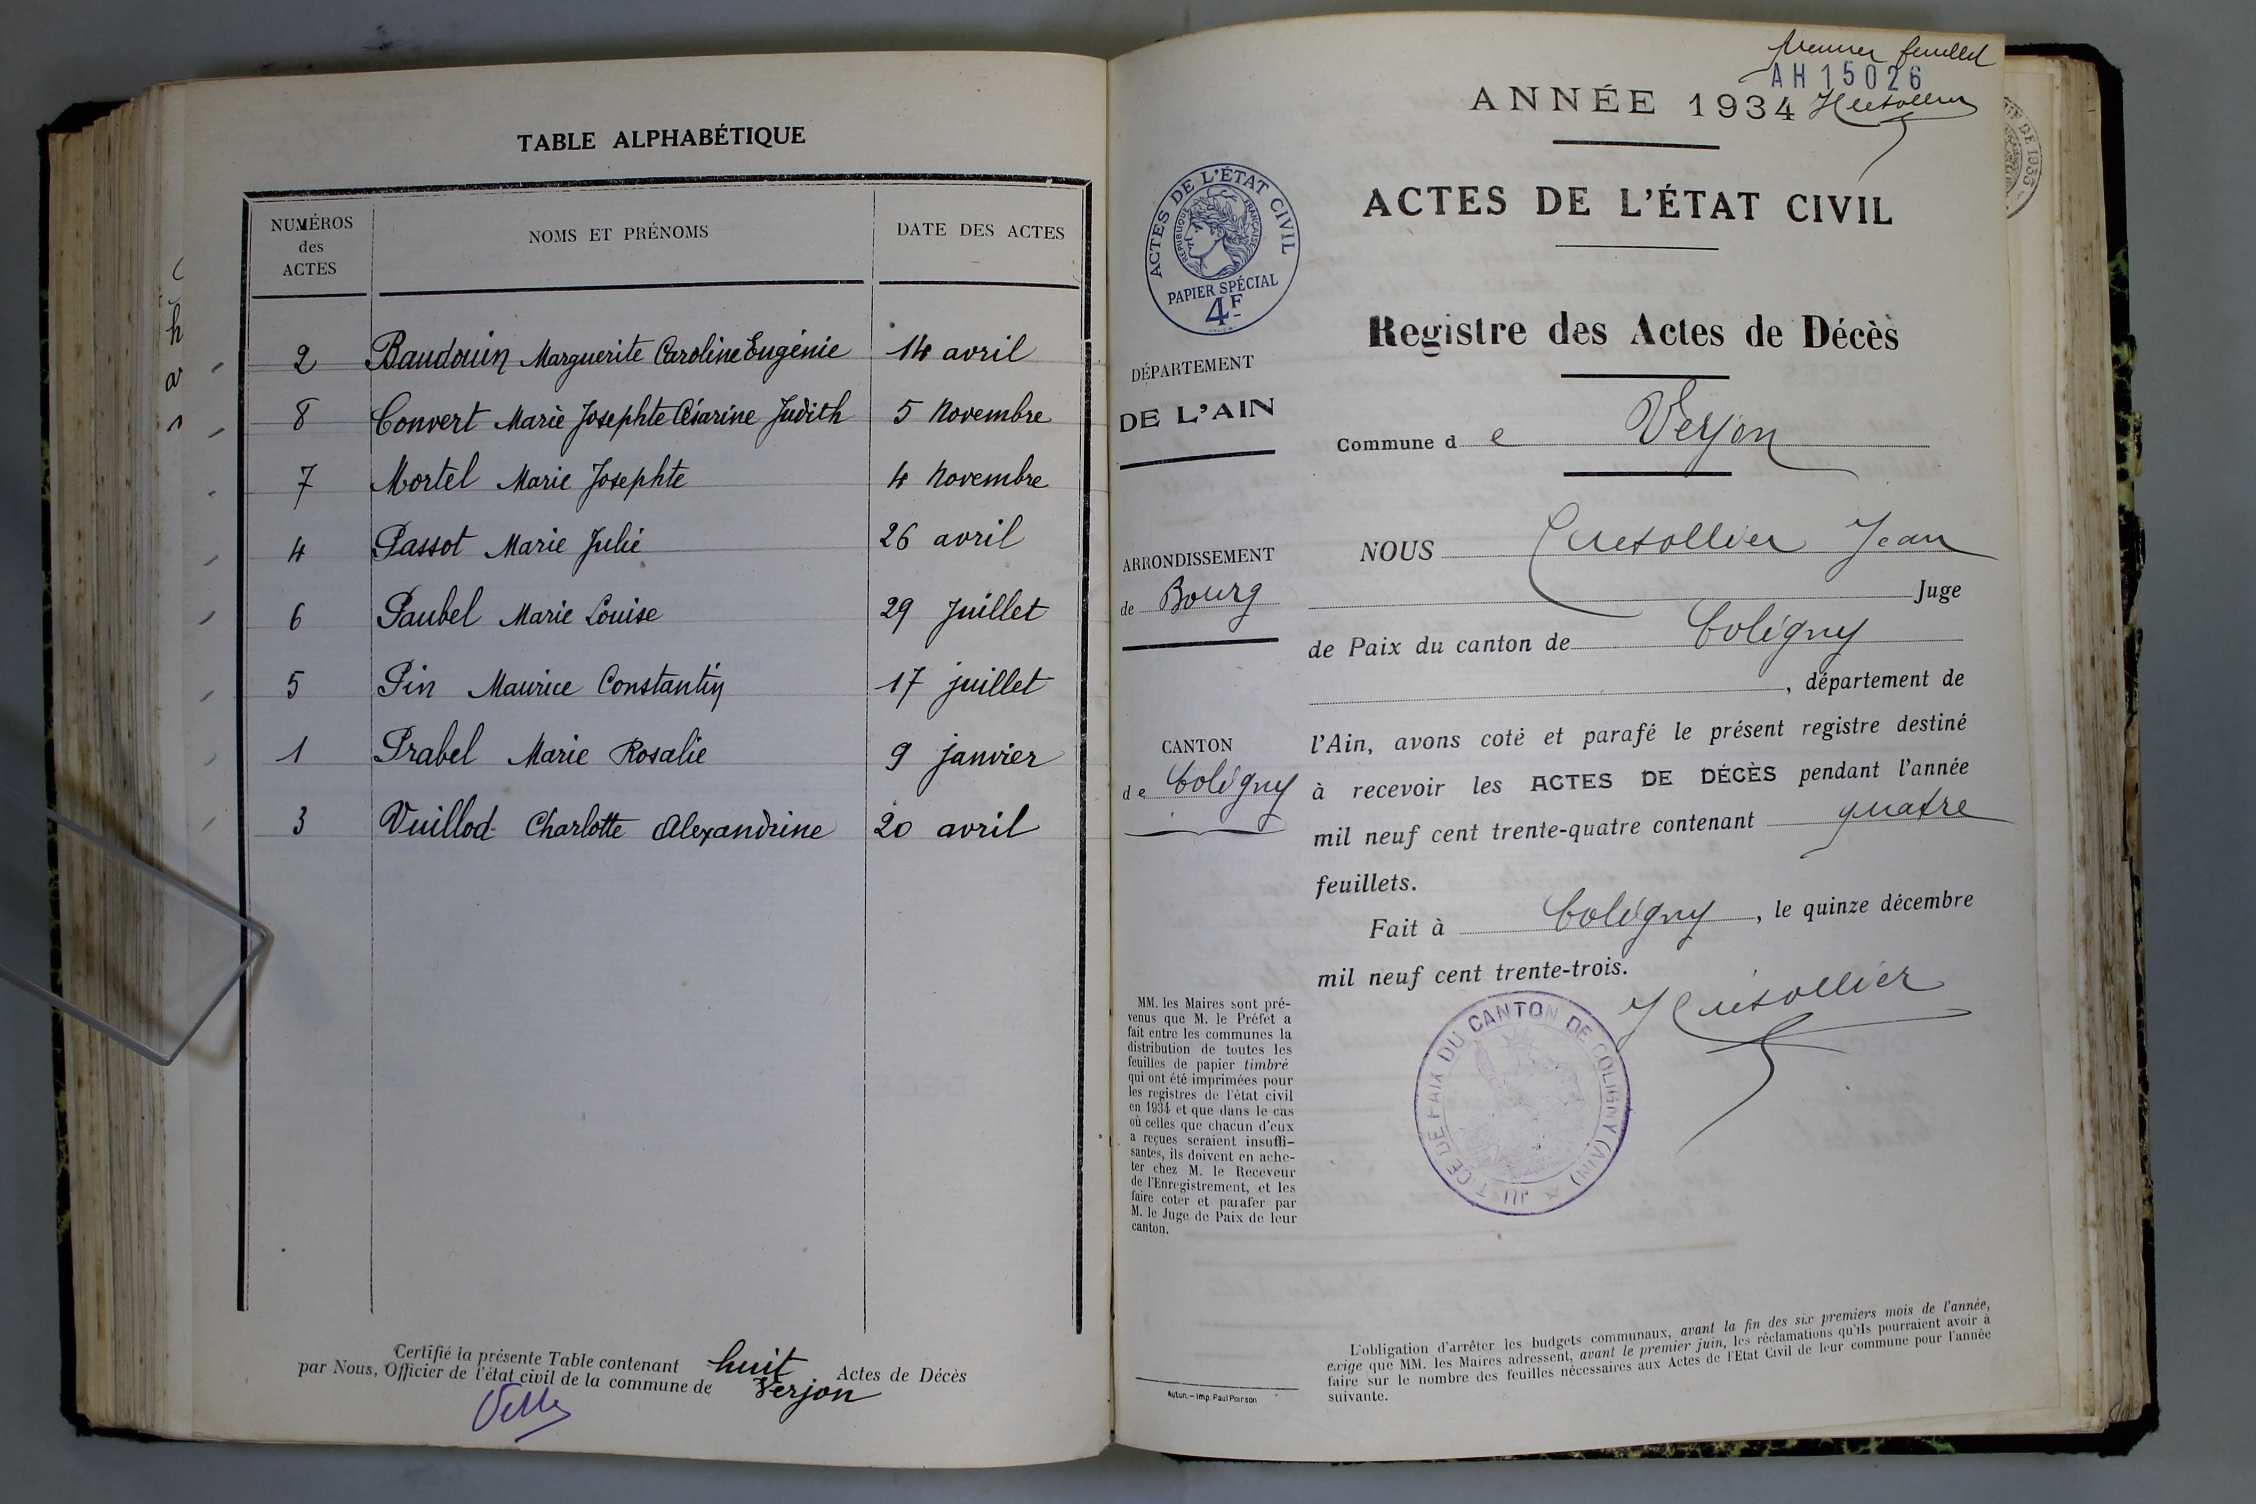 TABLE ALPHABÉTIQUE
NUMÉROS des ACTES | NOMS ET PRÉNOMS | DATE DES ACTES
2 Baudouin Marguerite Caroline Eugénie 14 avril
8 Convert Marie Josephte Césarine Judith 5 Novembre
7 Mortel Marie Josephte 4 Novembre
4 Passot Marie Julie 26 avril
6 Paubel Marie Louise 29 Juillet
5 Pin Maurice Constantin 17 juillet
1 Prabel Marie Rosalie 9 janvier
3 Vuillod Charlotte Alexandrine 20 avril
Certifié la présente Table contenant huit Actes de Décès
par Nous, Officier de l'état civil de la commune de Verjon
premier feuillet
AH 15026
ANNÉE 1934
ACTES DE L'ÉTAT CIVIL
ACTES DE L'ÉTAT CIVIL
RÉPUBLIQUE FRANÇAISE
PAPIER SPÉCIAL
4F
Registre des Actes de Décès
DÉPARTEMENT
DE L'AIN
Commune de Verjon
ARRONDISSEMENT
de Bourg
NOUS Cuetollier Jean
Juge
de Paix du canton de Coligny
, département de
CANTON
de Coligny
l'Ain, avons coté et parafé le présent registre destiné
à recevoir les ACTES DE DÉCÈS pendant l'année
mil neuf cent trente-quatre contenant quatre
feuillets.
Fait à Coligny, le quinze décembre
mil neuf cent trente-trois.
JUSTICE DE PAIX DU CANTON DE COLIGNY (AIN)
MM. les Maires sont pré-
venus que M. le Préfet a
fait entre les communes la
distribution de toutes les
feuilles de papier timbré
qui ont été imprimées pour
les registres de l'état civil
en 1934 et que dans le cas
où celles que chacun d'eux
a reçues seraient insuffi-
santes, ils doivent en ache-
ter chez M. le Receveur
de l'Enregistrement, et les
faire coter et parafer par
M. le Juge de Paix de leur
canton.
Autun. – Imp. Paul Poirson
L'obligation d'arrêter les budgets communaux, avant la fin des six premiers mois de l'année,
exige que MM. les Maires adressent, avant le premier juin, les réclamations qu'ils pourraient avoir à
faire sur le nombre des feuilles nécessaires aux Actes de l'Etat Civil de leur commune pour l'année
suivante.